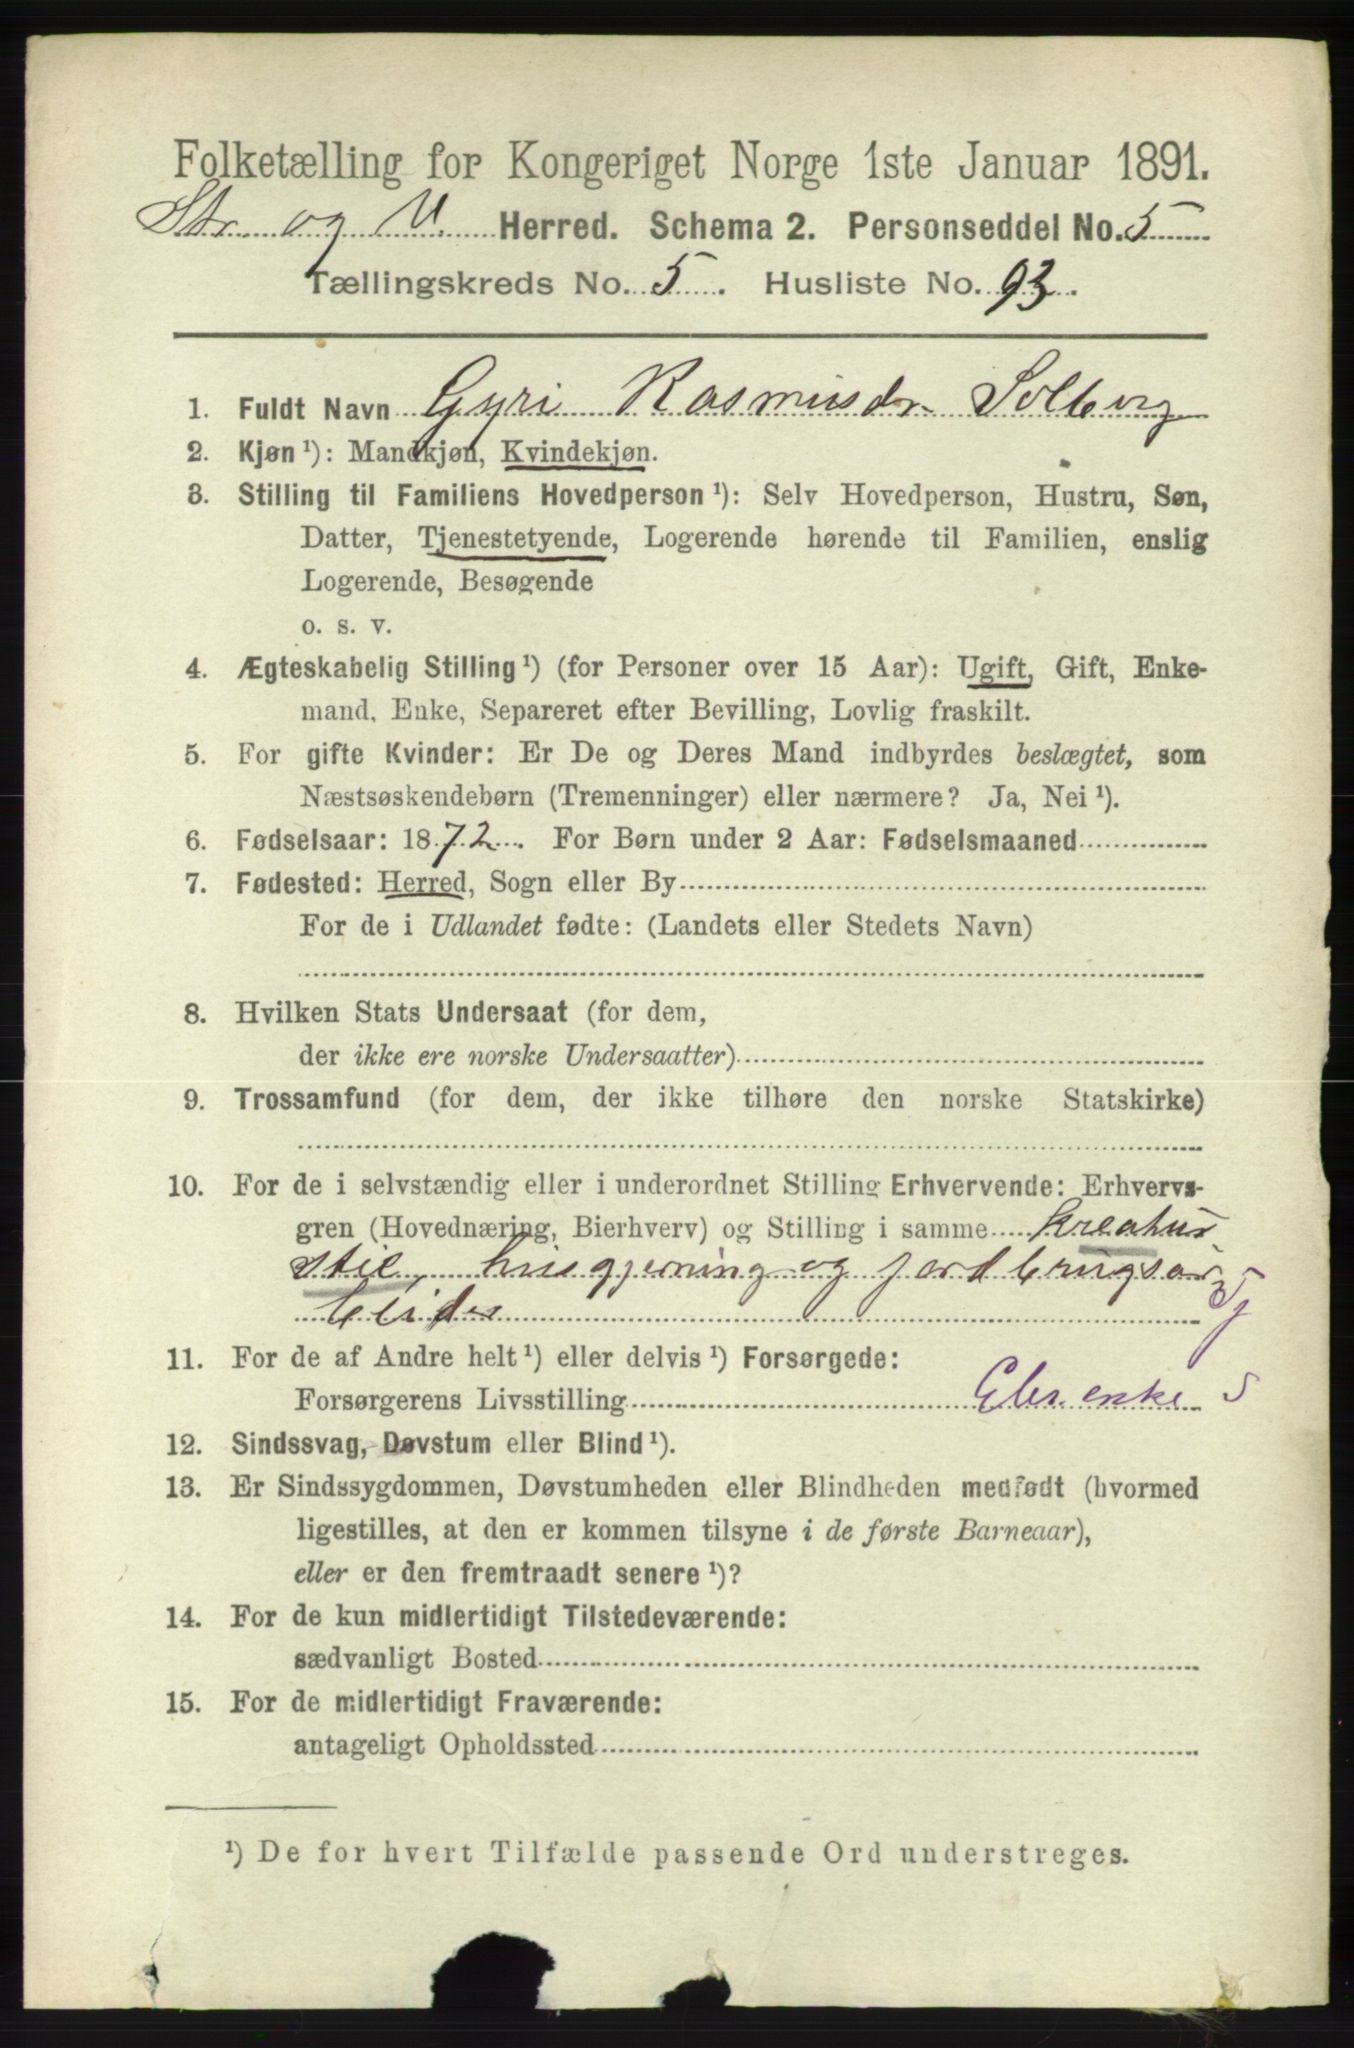 Folketælling for Kongeriget Norge 1ste Januar 1891.
Str. og V. Herred. Schema 2. Personseddel No. 5
Tællingskreds No. 5. Husliste No. 93.
1. Fuldt Navn Gyri Rasmusdr Solberg
2. Kjøn ¹): Mandkjøn, Kvindekjøn.
3. Stilling til Familiens Hovedperson ¹): Selv Hovedperson, Hustru, Søn,
Datter, Tjenestetyende, Logerende hørende til Familien, enslig
Logerende, Besøgende
o. s. v.
4. Ægteskabelig Stilling ¹) (for Personer over 15 Aar): Ugift, Gift, Enke-
mand, Enke, Separeret efter Bevilling, Lovlig fraskilt.
5. For gifte Kvinder: Er De og Deres Mand indbyrdes beslægtet, som
Næstsøskendebørn (Tremenninger) eller nærmere? Ja, Nei ¹).
6. Fødselsaar: 1872. For Børn under 2 Aar: Fødselsmaaned
7. Fødested: Herred, Sogn eller By
For de i Udlandet fødte: (Landets eller Stedets Navn)
8. Hvilken Stats Undersaat (for dem,
der ikke ere norske Undersaatter)
9. Trossamfund (for dem, der ikke tilhøre den norske Statskirke)
10. For de i selvstændig eller i underordnet Stilling Erhvervende: Erhvervs-
gren (Hovednæring, Bierhverv) og Stilling i samme kreatur
stil, husgjerning og jordbrugsar
beider Tj
11. For de af Andre helt ¹) eller delvis ¹) Forsørgede:
Forsørgerens Livsstilling enke s
12. Sindssvag, Døvstum eller Blind ¹).
13. Er Sindssygdommen, Døvstumheden eller Blindheden medfødt (hvormed
ligestilles, at den er kommen tilsyne i de første Barneaar),
eller er den fremtraadt senere ¹)?
14. For de kun midlertidigt Tilstedeværende:
sædvanligt Bosted
15. For de midlertidigt Fraværende:
antageligt Opholdssted
¹) De for hvert Tilfælde passende Ord understreges.